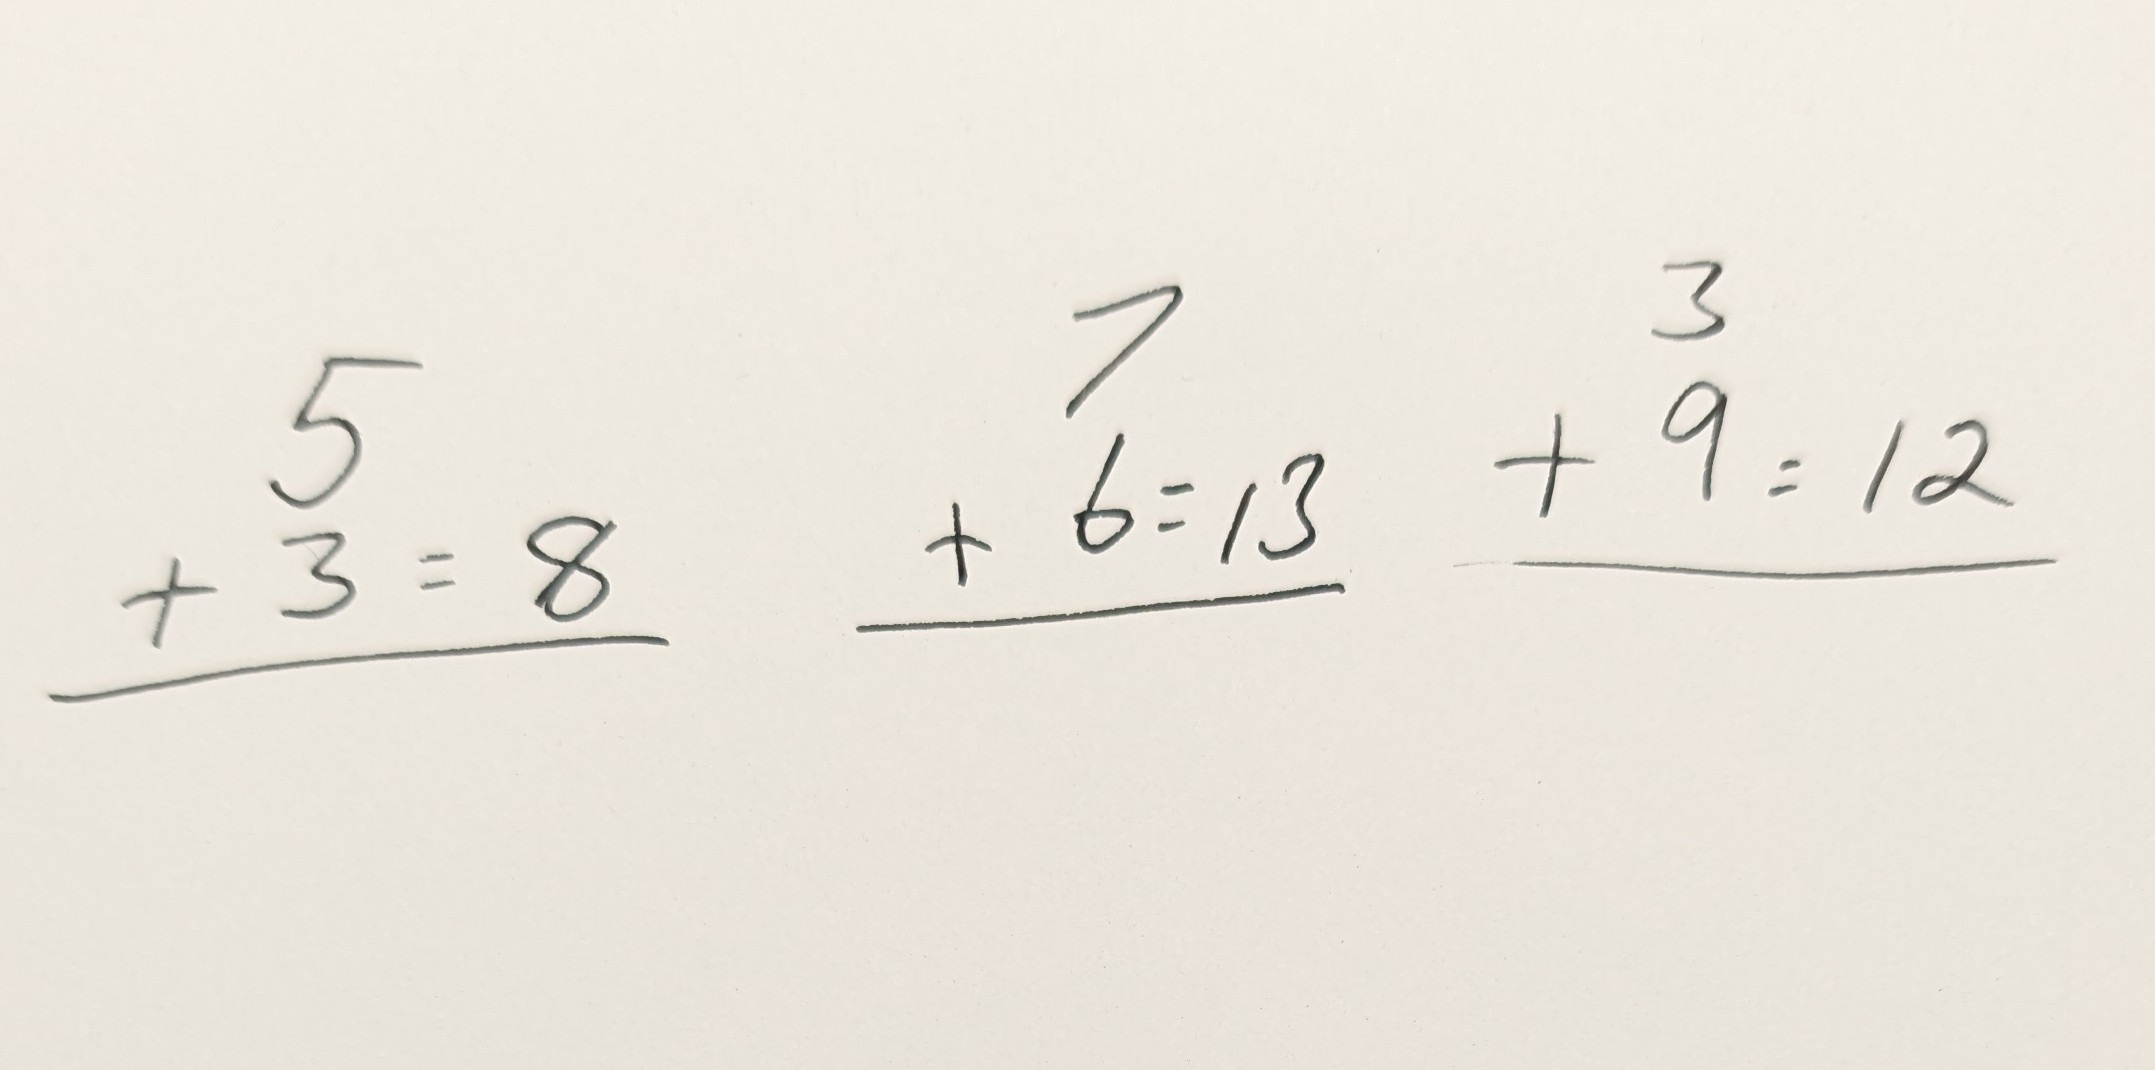 5
+ 3 = 8
7
+ 6 = 13
3
+ 9 = 12